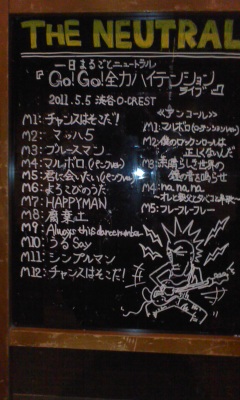 THE NEUTRAL
一日まるごとニュートラル
『Go!Go!全力ハイテンション
ライブ』
2011.5.5 渋谷O-CREST
M1:チャンスはそこだ!
M2:マッハ5
M3:ブルースマン
M4:マルボロ
M5:君に会いたい
M6:よろこびのうた
M7:HAPPYMAN
M8:腐葉土
M9:Always this dance
M10:うるSay
M11:シンプルマン
M12:チャンスはそこだ!
≪アンコール≫
M1:マルボロ
M2:僕のロックンロールは
正しくないんだ
M3:素晴らしき世界の
M4:na.na.na
M5:フレーフレーフレー